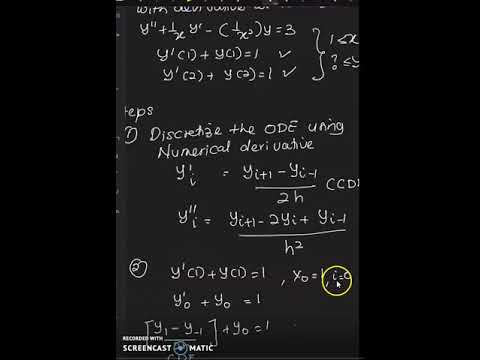 with derivative
y'' + 1/x y' - (1/x²)y = 3
y'(1) + y(1) = 1 ✓
y'(2) + y(2) = 1 ✓
1 ≤ x
? ≤ y
teps
① Discretize the ODE using
Numerical derivative
y'i = (yi+1 - yi-1)/2h CCD
y''i = (yi+1 - 2yi + yi-1)/h²
② y'(1) + y(1) = 1 , x0 = 1, i=0
y'0 + y0 = 1
[y1 - y-1] + y0 = 1
RECORDED WITH
SCREENCAST MATIC